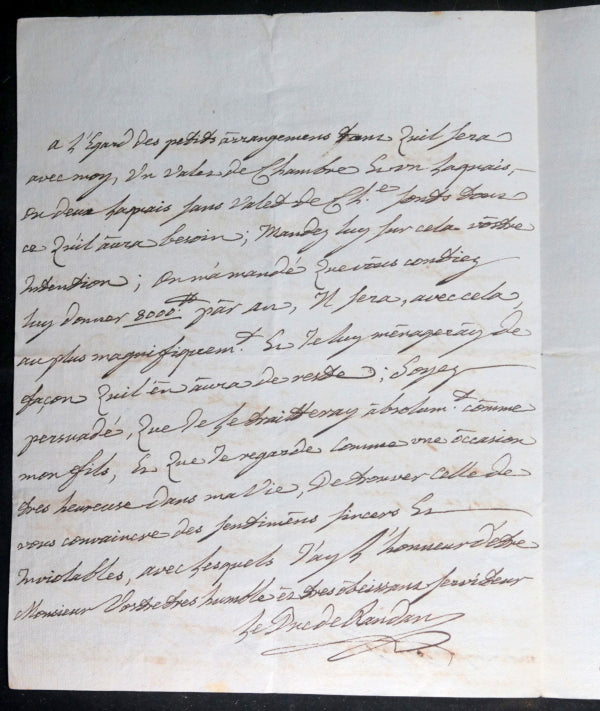 a L'Egard des petits arrangemens tant Quil sera
avec moy, Vn Valet de Chambre Et vn Laquais,
ou deux Laquais sans Valet de Ch.e sont tous
ce Quil aura besoin; Mandez luy sur cela vostre
Intention; on m'a mandé Que vous contiez
luy donner 8000.# par an, Il sera, avec cela,
au plus magnifiquem.t Et Je luy menageray de
façon Quil en aura de reste; Soyez
persuadé, Que Je Le traitteray absolum.t comme
mon fils, Et Que Je regarde comme vne occasion
tres heureuse dans ma Vie, De trouver celle de
vous convaincre des sentimens sincers Et
Inviolables, avec Lesquels J'ay L'honneur d'être
Monsieur Vostre tres humble et tres obeissans serviteur
Le Duc de Randan